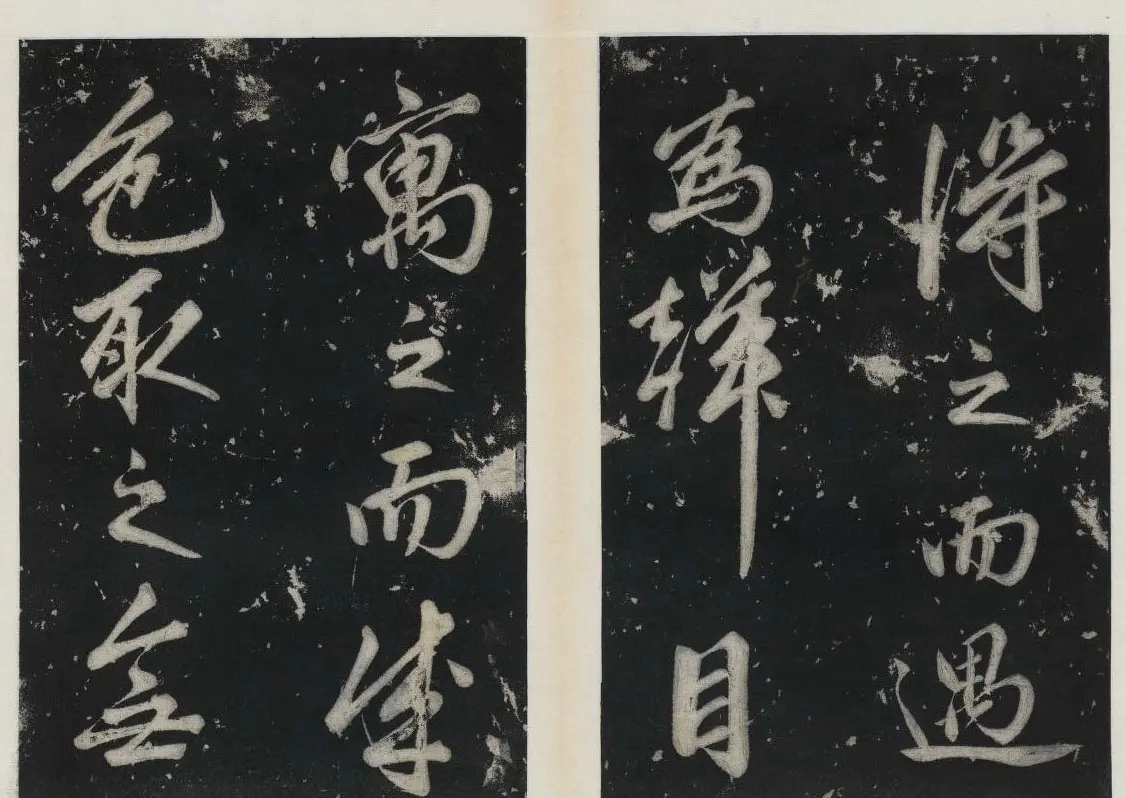 得之而遇
為目
寓之而成
色取之無